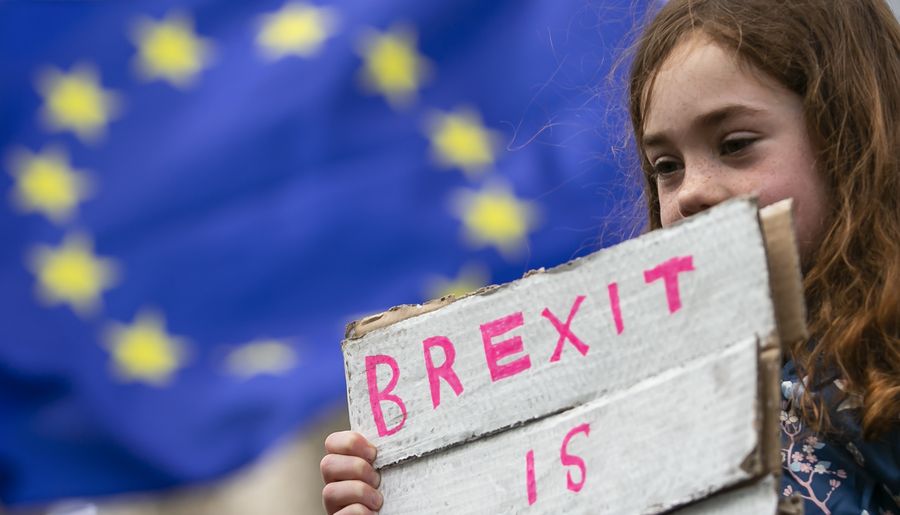 BREXIT
IS